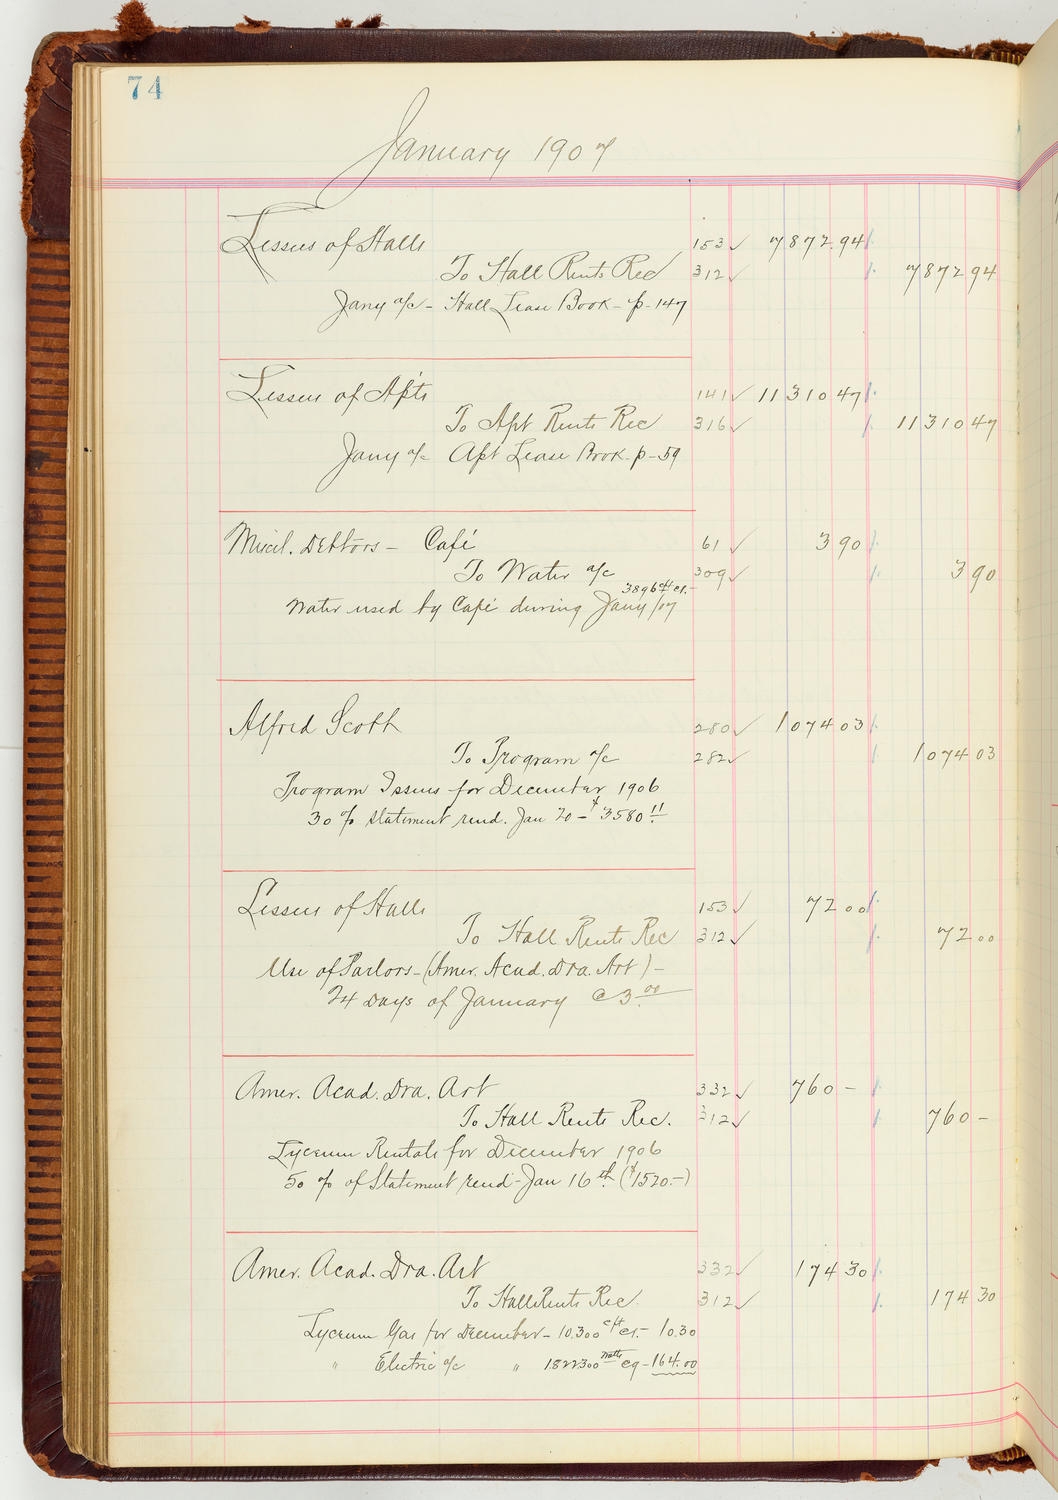 74
January 1907
Lessees of Halls 153 ✓ 7872.94
To Hall Rents Rec 312 ✓ 7872 94
Jany a/c - Hall Lease Book - p - 147
Lessees of Apts 141 ✓ 11310 47
To Apt Rents Rec 316 ✓ 11310 47
Jany a/c Apt Lease Book - p - 59
Miscl. Debtors - Café 61 ✓ 3 90
To Water a/c 309 ✓ 3 90
3896 cft @.-
Water used by Café during Jany /07
Alfred Scott 280 ✓ 1074 03
To Program a/c 282 ✓ 1074 03
Program Issues for December 1906
30 % statement rend. Jan 20 - $3580 11
Lessees of Halls 153 ✓ 72 00
To Hall Rents Rec 312 ✓ 72 00
Use of Parlors - (Amer. Acad. Dra. Art) -
24 days of January @ 3.00
Amer. Acad. Dra. Art 332 ✓ 760 -
To Hall Rents Rec. 312 ✓ 760 -
Lyceum Rentals for December 1906
50 % of Statement rend - Jan 16th ($1520.-)
Amer. Acad. Dra. Art 332 ✓ 174 30
To Hall Rents Rec 312 ✓ 174 30
Lyceum Gas for December - 10,300 cft @.- 10.30
" Electric a/c " 1822300 Watts @ - 164.00